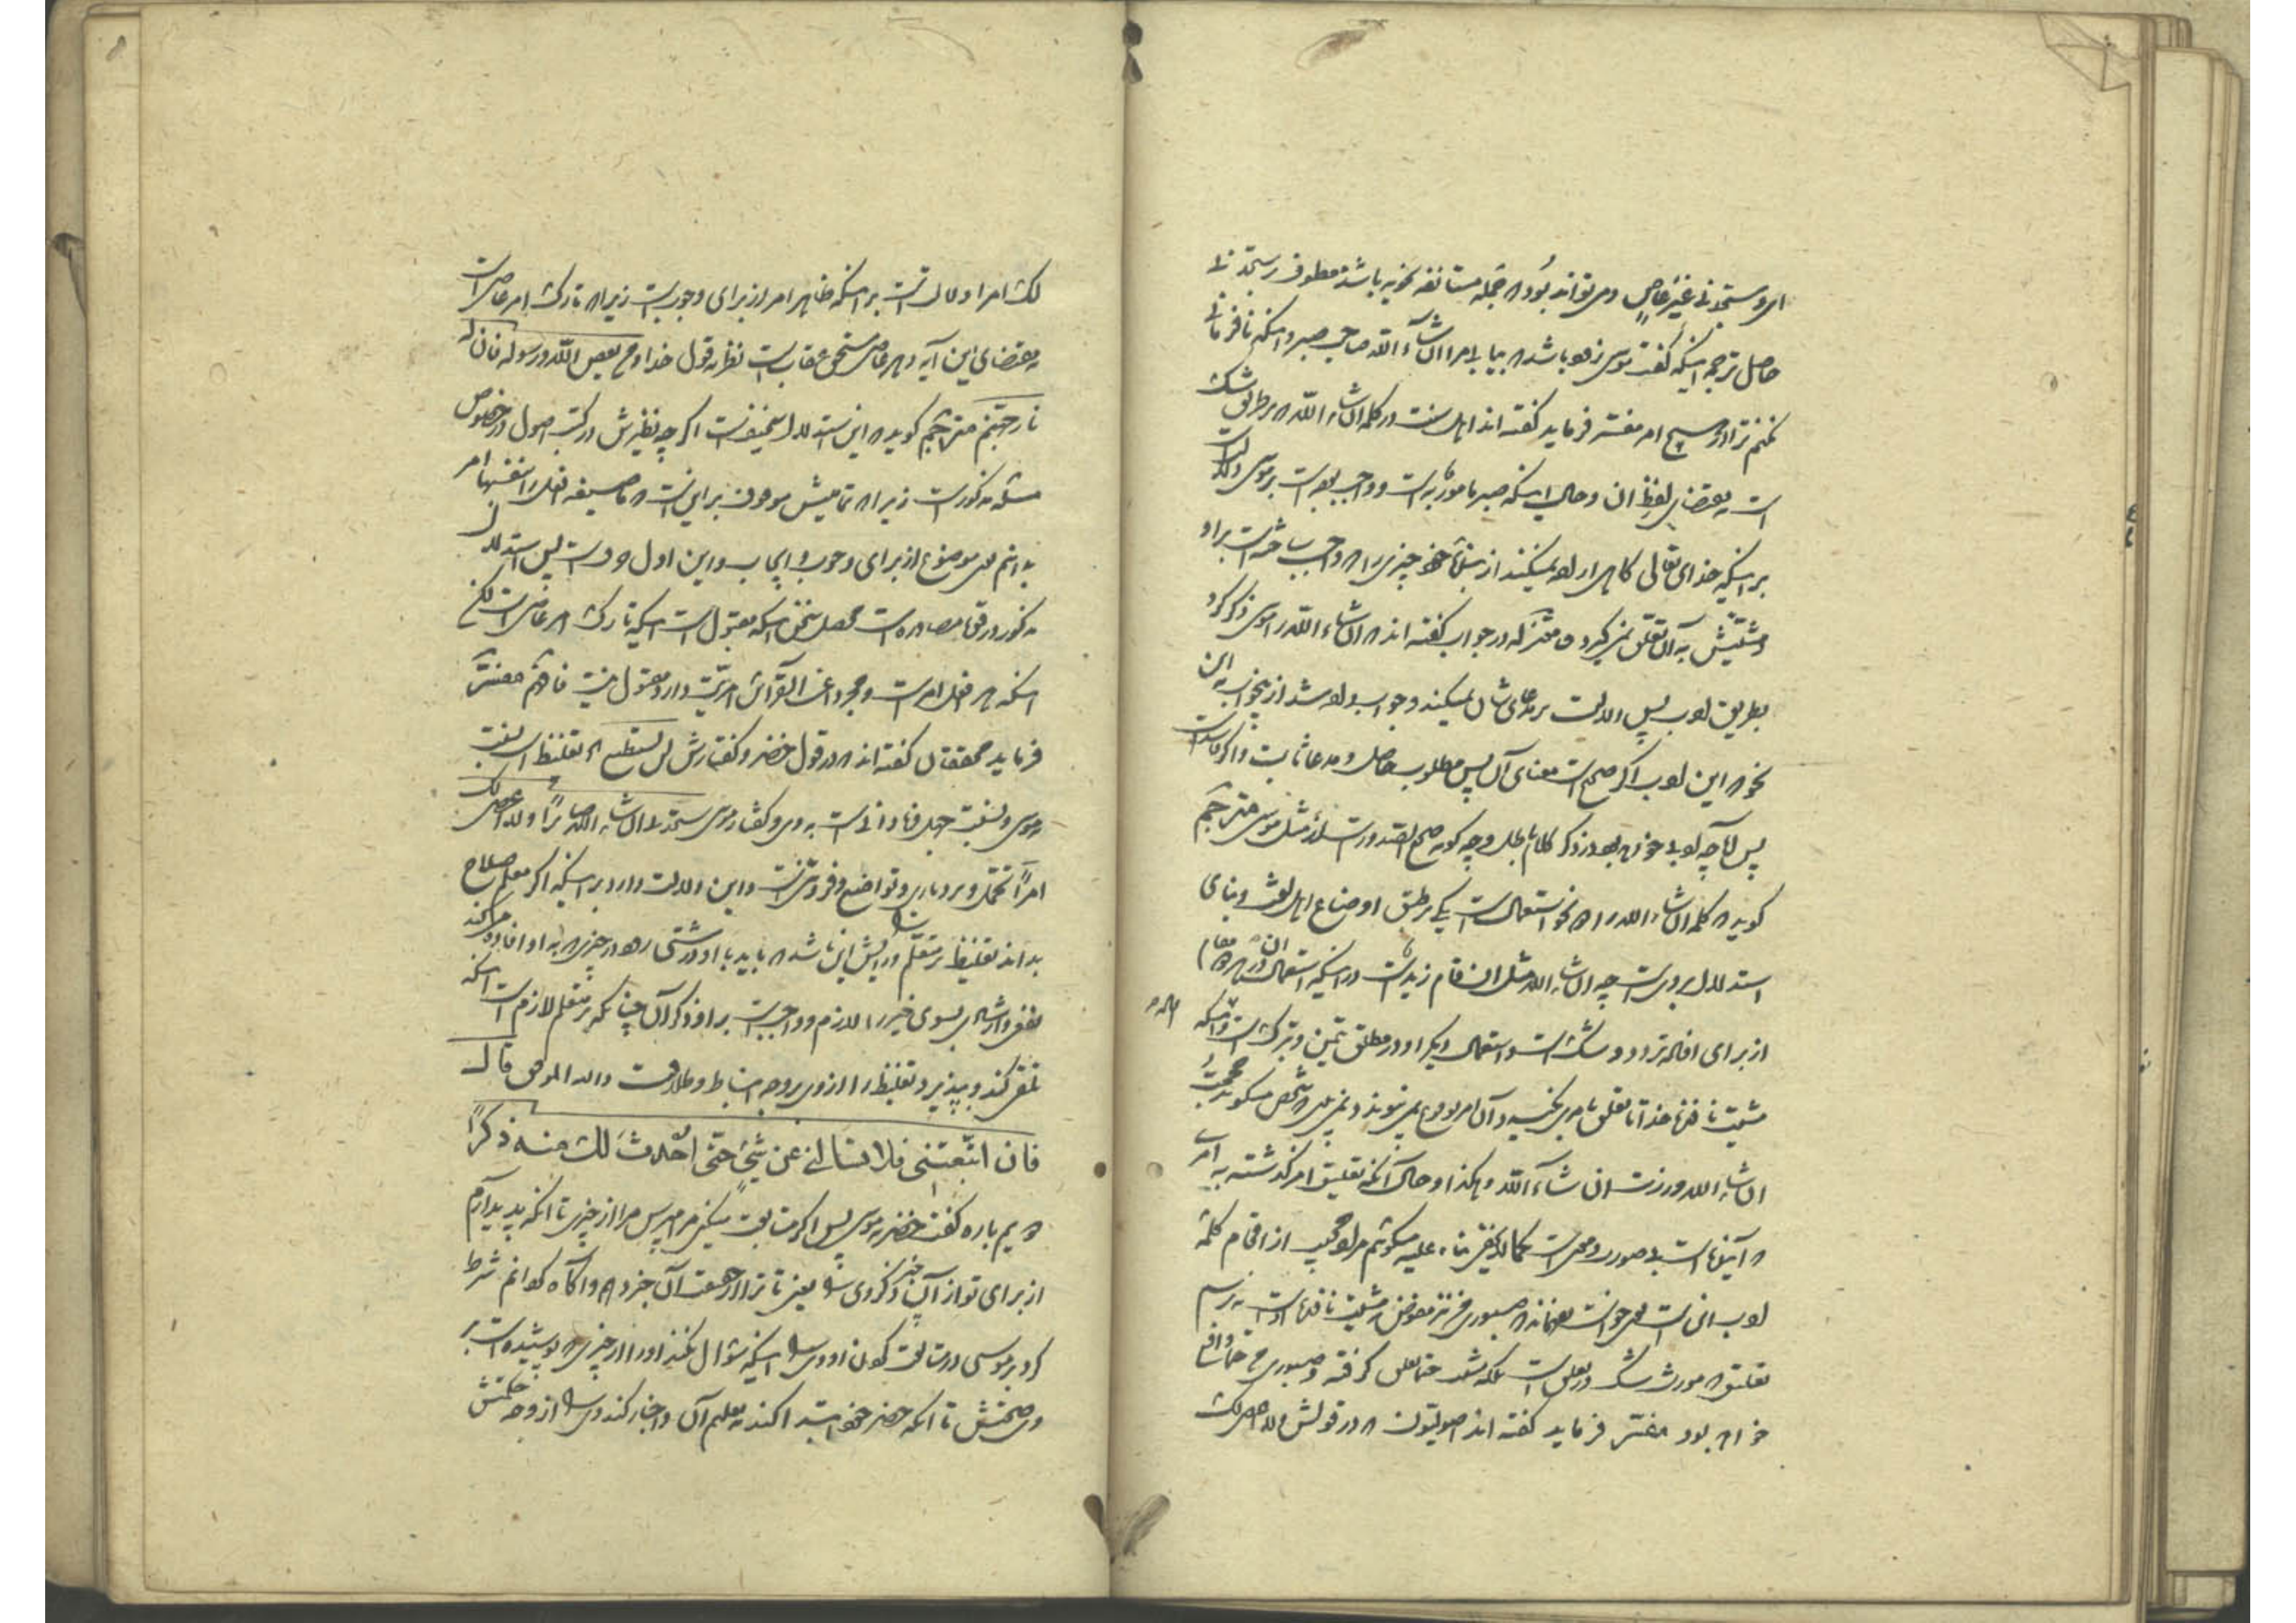 ای و ستجدنی غیر عاصٍ و می تواند بود که جمله مستانفه نحویه باشد معطوف بر ستجدنی
حاصل ترجمه اینکه گفت موسی زود باشد که بیابی مرا ان شآء الله صاحب صبر و اینکه نافرمانی
نکنم ترا در هیچ امر مفسّر فرماید گفته اند اهل سنت در کلمه ان شاء الله که بر طریق شک
است به مقتضای لفظِ ان و حال اینکه صبر مامورٌ به است و واجب بود است بر موسی دلالت
بر اینکه خدای تعالی کاهی اراده نمیکند از بنده خود چیزی را که واجب ساخته است بر او
و مشیّتش به آن تعلّق نمی گیرد و معتزله در جواب گفته اند که ان شاء الله را موسی ذکر کرد
بطریق ادب پس دلالت بر مدعای شان نمیکند و جواب داده شد از جواب به این
نحو که این ادب اگر صحیح است معنای آن پس مطلوب حاصل و مدعا ثابت و اگر فاسد است
پس آیا چه ادبی خواهد بود در ذکر کلام باطل و چه گونه صحیح الصدور است از مثل موسی مترجم
گوید که کلمه ان شاء الله را دو نحو استعمال است یکی بر طبق اوضاع اهل لغت و بنای
استدلال بر وی است چه ان شاء الله مثل ان قام زید است در اینکه استعمال ان در هر دو مقام
از برای افاده تردد و شک است و استعمال دیگر او در مطلق تیمّن و تبرک است و اینکه
مشیت خدا تا تعلق بامری نگیرد آن امر بوقوع نمی پیوندد نمی بینی که شخص میگوید
ان شاء الله و زرت ان شآء الله و هکذا و حال آنکه تعلیق امر گذشته به امری
که آینده است بی صورت و معنی است کما لا یخفی بناء علیه میگوئیم مراد مجیب از اقسام کلمه
تعلیق که مورث شک در تعلق است بلکه
خواهد بود مفسّر فرماید گفته اند اصولیّون که در قولش و لا اعصی لک
لک امرا دلالت است بر اینکه ظاهر امر از برای وجوب است زیرا که تارک امر عاصی است
به مقتضای این آیه و هر عاصی مستحق عقاب است نظر به قول خدا و من یعص الله و رسوله فان له
نار جهنم مترجم گوید که این استدلال سخیف است اگر چه نظیرش در کتب اصول در خصوص
مسئله مذکور است زیرا که تمامیتش موقوف بر این است که ما صیغه افعل را بنفسها امر
بدانیم یعنی موضوع از برای وجوب و ایجاب و این اول دعوی است پس استدلال
مذکور در قوه مصادره است محصل سخن اینکه مقبول است اینکه تارک امر عاصی است لکن
اینکه هر افعل امر است و مجرد از القرآئن امریّت دارد مقبول نیست فافهم مفسّر
فرماید محققان گفته اند که در قول خضر و گفتارش لن تستطیع الخ تغلیظ است بنسبت
موسی و نسبت جهل و نادانی است به وی و گفتار موسی ستجدنی ان شاء الله صابرًا و لا اعصی لک
امراً تحمّل و بردباری و تواضع و فروتنی است و این دلالت دارد بر اینکه اگر معلم صلاح
بداند تغلیظ بر متعلّم در آنش این باشد که باید با او درشتی رود در چیزی که به او افاده میکند
نفعی و ارشادی بسوی خیر را لازم و واجب است بر او ذکر آن چنانکه بر متعلم لازم است اینکه
تلقی کند و بپذیرد تغلیظ را از وی بر وجه انبساط و طلاقت والله الموفق قال
فان اتّبعتنی فلا تسالنی عن شیءٍ حتّی اُحدث لک منه ذکراً
دویم باره گفت خضر به موسی پس اگر متابعت میکنی مرا مپرس مرا از چیزی تا آنکه پدید آرم
از برای تو از آن چیز ذکری را یعنی تا ترا از حقیقت آن خبر دهم و آگاه گردانم شرط
کرد بر موسی در متابعت کردن او وی را اینکه سئوال نکند او را از چیزی که پوشیده است بر
وی صحتش تا آنکه خضر خود ابتدا کند به تعلیم آن و اخبار کند وی را از وجه حکمتش